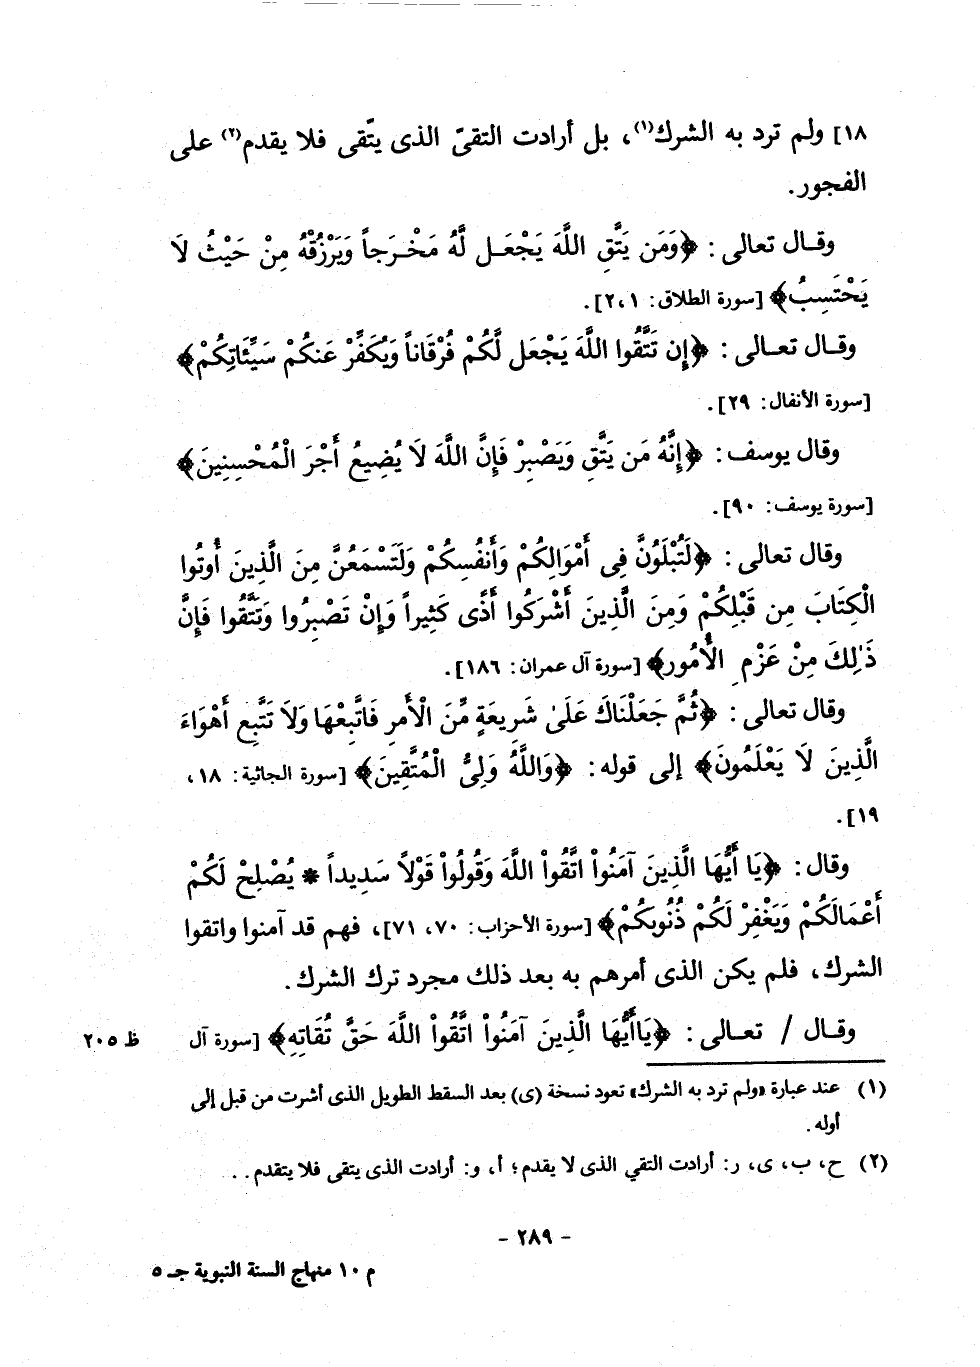 ١٨] ولم ترد به الشرك(١)، بل أرادت التقىّ الذى يتّقى فلا يقدم(٢) على
الفجور.
وقـال تعالى : ﴿وَمَن يَتَّقِ اللَّهَ يَجْعَـل لَّهُ مَخْـرَجاً وَيَرْزُقْهُ مِنْ حَيْثُ لَا
يَحْتَسِبُ﴾ [سورة الطلاق: ٢،١].
وقـال تعـالى : ﴿إِن تَتَّقُوا اللَّهَ يَجْعَل لَّكُمْ فُرْقَاناً وَيُكَفِّرْ عَنكُمْ سَيِّئَاتِكُمْ﴾
[سورة الأنفال: ٢٩].
وقال يوسف : ﴿إِنَّهُ مَن يَتَّقِ وَيَصْبِرْ فَإِنَّ اللَّهَ لَا يُضِيعُ أَجْرَ الْمُحْسِنِينَ﴾
[سورة يوسف: ٩٠].
وقال تعالى : ﴿لَتُبْلَوُنَّ فِى أَمْوَالِكُمْ وَأَنفُسِكُمْ وَلَتَسْمَعُنَّ مِنَ الَّذِينَ أُوتُوا
الْكِتَابَ مِن قَبْلِكُمْ وَمِنَ الَّذِينَ أَشْرَكُوا أَذًى كَثِيراً وَإِنْ تَصْبِرُوا وَتَتَّقُوا فَإِنَّ
ذَٰلِكَ مِنْ عَزْمِ الْأُمُورِ﴾ [سورة آل عمران: ١٨٦].
وقال تعالى : ﴿ثُمَّ جَعَلْنَاكَ عَلَىٰ شَرِيعَةٍ مِّنَ الْأَمرِ فَاتَّبِعْهَا وَلَا تَتَّبِع أَهْوَاءَ
الَّذِينَ لَا يَعْلَمُونَ﴾ إلى قوله: ﴿وَاللَّهُ وَلِىُّ الْمُتَّقِينَ﴾ [سورة الجاثية: ١٨،
١٩].
وقال : ﴿يَا أَيُّهَا الَّذِينَ آمَنُواْ اتَّقُواْ اللَّهَ وَقُولُواْ قَوْلاً سَدِيداً * يُصْلِحْ لَكُمْ
أَعْمَالَكُمْ وَيَغْفِرْ لَكُمْ ذُنُوبَكُمْ﴾ [سورة الأحزاب: ٧٠، ٧١]، فهم قد آمنوا واتقوا
الشرك، فلم يكن الذى أمرهم به بعد ذلك مجرد ترك الشرك.
وقـال / تعـالى : ﴿يَاأَيُّهَا الَّذِينَ آمَنُواْ اتَّقُواْ اللَّهَ حَقَّ تُقَاتِهِ﴾ [سورة آل ظ ٢٠٥
(١) عند عبارة «ولم ترد به الشرك» تعود نسخة (ى) بعد السقط الطويل الذى أشرت من قبل إلى
أوله.
(٢) ح، ب، ى، ر: أرادت التقي الذى لا يقدم؛ أ، و: أرادت الذى يتقى فلا يتقدم. .
- ٢٨٩ -
م ١٠ منهاج السنة النبوية جـ ٥